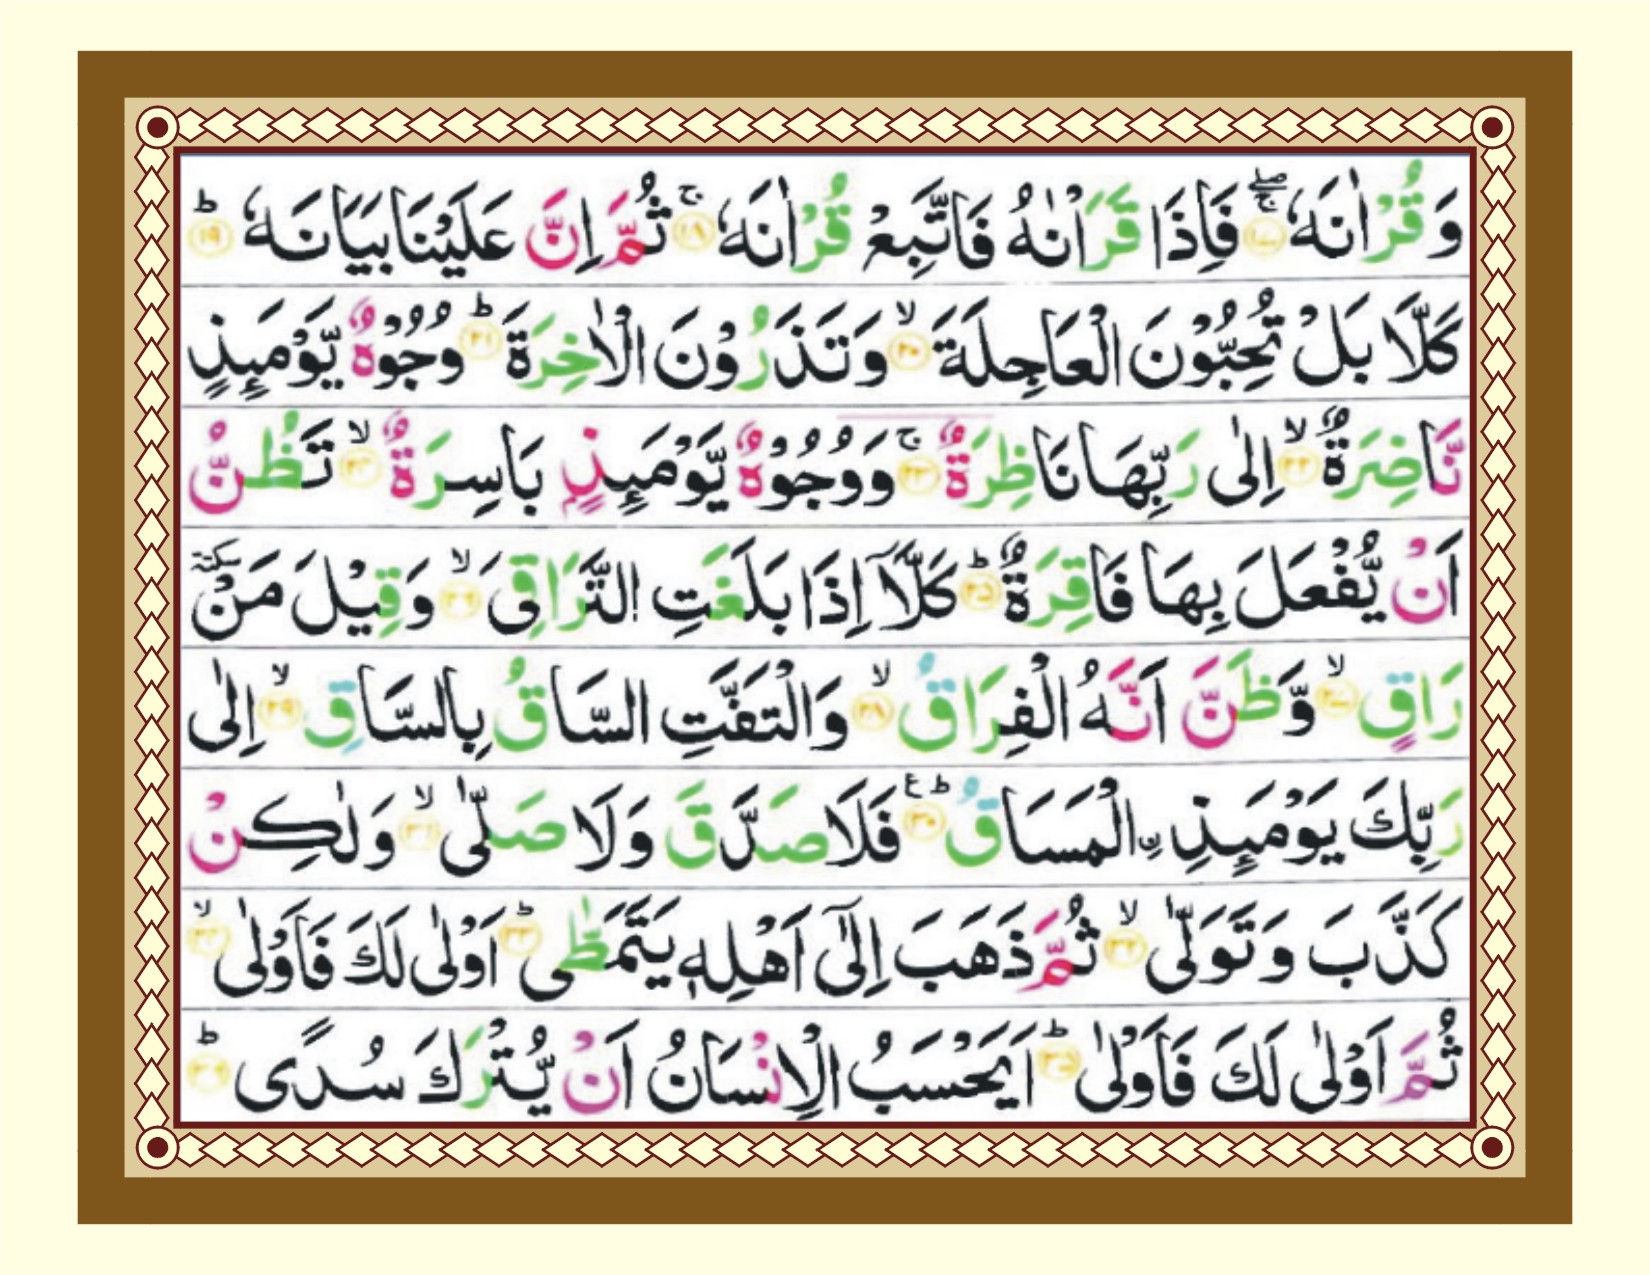 وَ قُرْاٰنَهٗ ۚۖ ﴿۱۷﴾ فَاِذَا قَرَاْنٰهُ فَاتَّبِعْ قُرْاٰنَهٗ ۚ ﴿۱۸﴾ ثُمَّ اِنَّ عَلَيْنَا بَيَانَهٗ ؕ ﴿۱۹﴾
كَلَّا بَلْ تُحِبُّوْنَ الْعَاجِلَةَ ۙ ﴿۲۰﴾ وَ تَذَرُوْنَ الْاٰخِرَةَ ؕ ﴿۲۱﴾ وُجُوْهٌ يَّوْمَئِذٍ
نَّاضِرَةٌ ۙ ﴿۲۲﴾ اِلٰى رَبِّهَا نَاظِرَةٌ ۚ ﴿۲۳﴾ وَ وُجُوْهٌ يَّوْمَئِذٍۭ بَاسِرَةٌ ۙ ﴿۲۴﴾ تَظُنُّ
اَنْ يُّفْعَلَ بِهَا فَاقِرَةٌ ؕ ﴿۲۵﴾ كَلَّاۤ اِذَا بَلَغَتِ التَّرَاقِيَ ۙ ﴿۲۶﴾ وَ قِيْلَ مَنْ سكتة
رَاقٍ ۙ ﴿۲۷﴾ وَّ ظَنَّ اَنَّهُ الْفِرَاقُ ۙ ﴿۲۸﴾ وَ الْتَفَّتِ السَّاقُ بِالسَّاقِ ۙ ﴿۲۹﴾ اِلٰى
رَبِّكَ يَوْمَئِذِ ِ۟الْمَسَاقُ ؕ ع ﴿۳۰﴾ فَلَا صَدَّقَ وَ لَا صَلّٰى ۙ ﴿۳۱﴾ وَ لٰكِنْ
كَذَّبَ وَ تَوَلّٰى ۙ ﴿۳۲﴾ ثُمَّ ذَهَبَ اِلٰۤى اَهْلِهٖ يَتَمَطّٰى ؕ ﴿۳۳﴾ اَوْلٰى لَكَ فَاَوْلٰى ۙ ﴿۳۴﴾
ثُمَّ اَوْلٰى لَكَ فَاَوْلٰى ؕ ﴿۳۵﴾ اَيَحْسَبُ الْاِنْسَانُ اَنْ يُّتْرَكَ سُدًى ؕ ﴿۳۶﴾